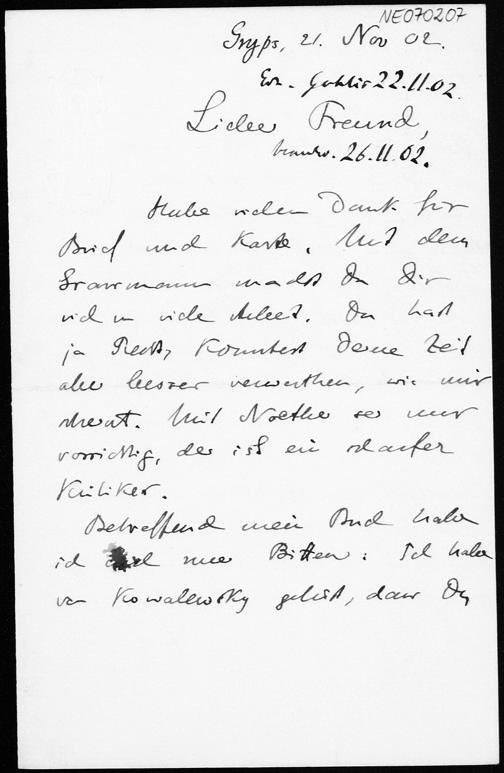 NE070207
Gryps, 21. Nov 02.
Erh. Gohlis 22.11.02.
Lieber Freund,
beantw. 26.11.02.
Habe vielen Dank für
Brief und Karte. Mit dem
Grassmann machst Du Dir
viel zu viele Arbeit. Du hast
ja Recht, konntest Deine Zeit
aber besser verwerthen, wie mir
scheint. Mit Noether sei nur
vorsichtig, der ist ein scharfer
Kritiker.
Betreffend mein Buch habe
ich eine Bitten: Ich habe
von Kowalewsky gehört, dass Du